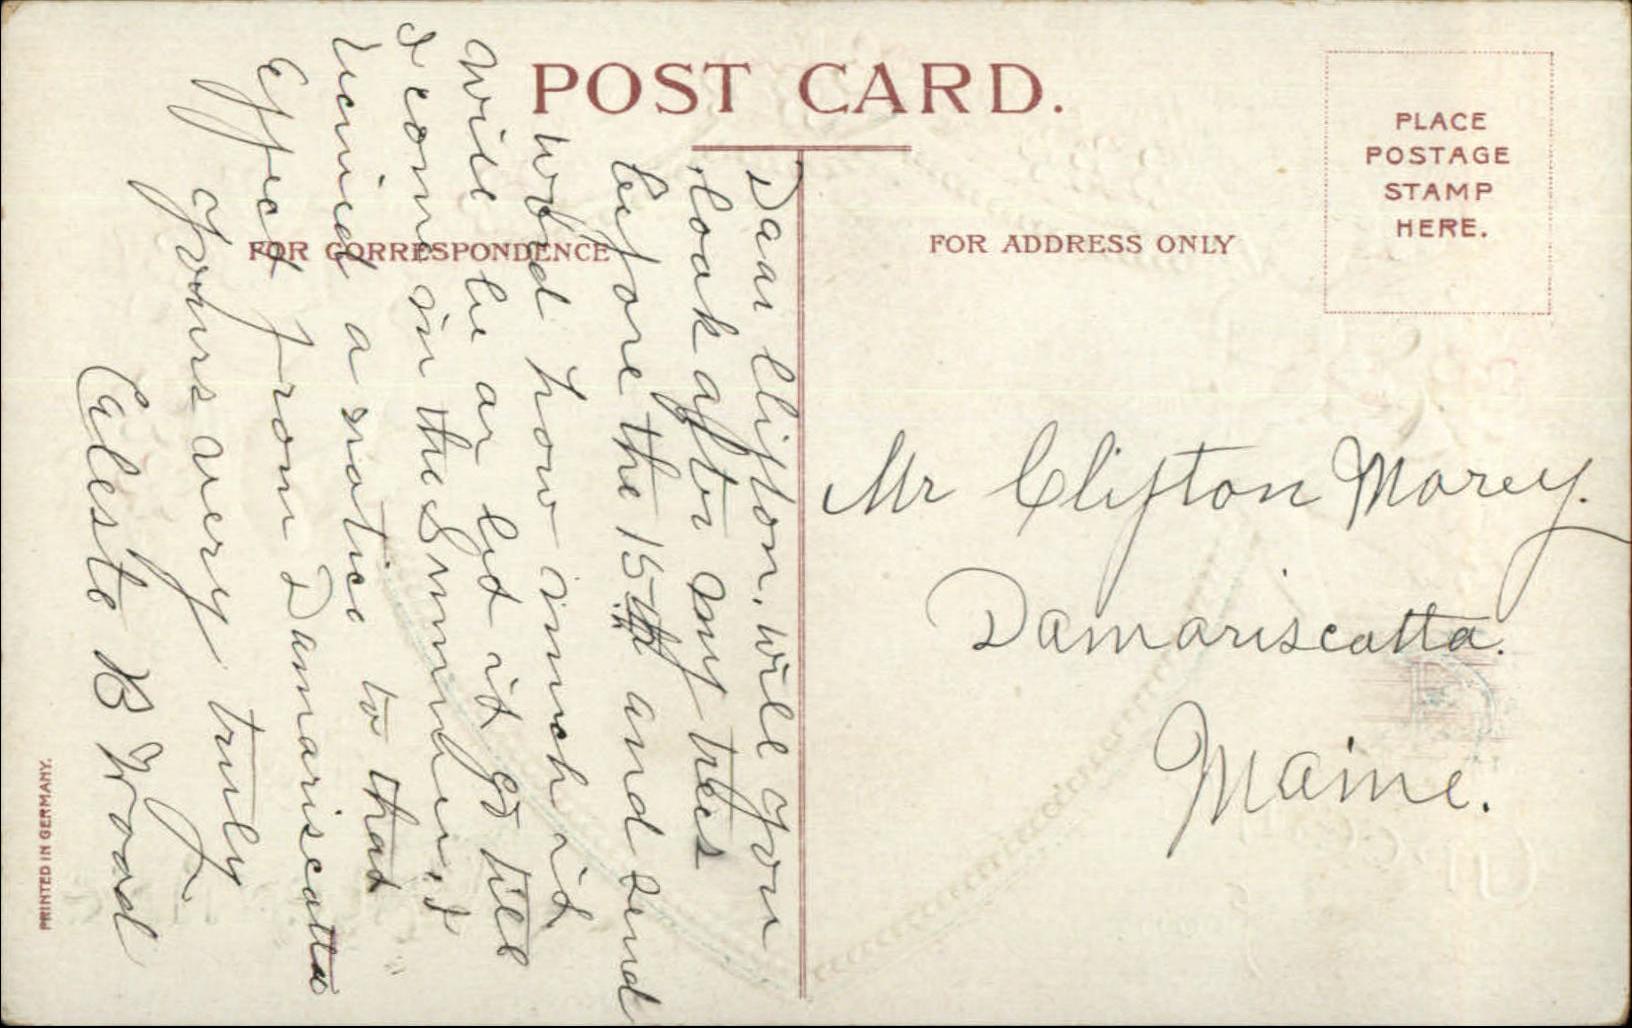 POST CARD.
PLACE
POSTAGE
STAMP
HERE.
FOR CORRESPONDENCE
FOR ADDRESS ONLY
Dear Clifton, will you
look after my trees
before the 15th and send
word how much it
will be or let it go till
I come in the Summer, I
recived a notice to that
Effect from Damariscotta
yours very truly
Celeste B Wood
Mr Clifton Morey.
Damariscotta.
Maine.
PRINTED IN GERMANY.